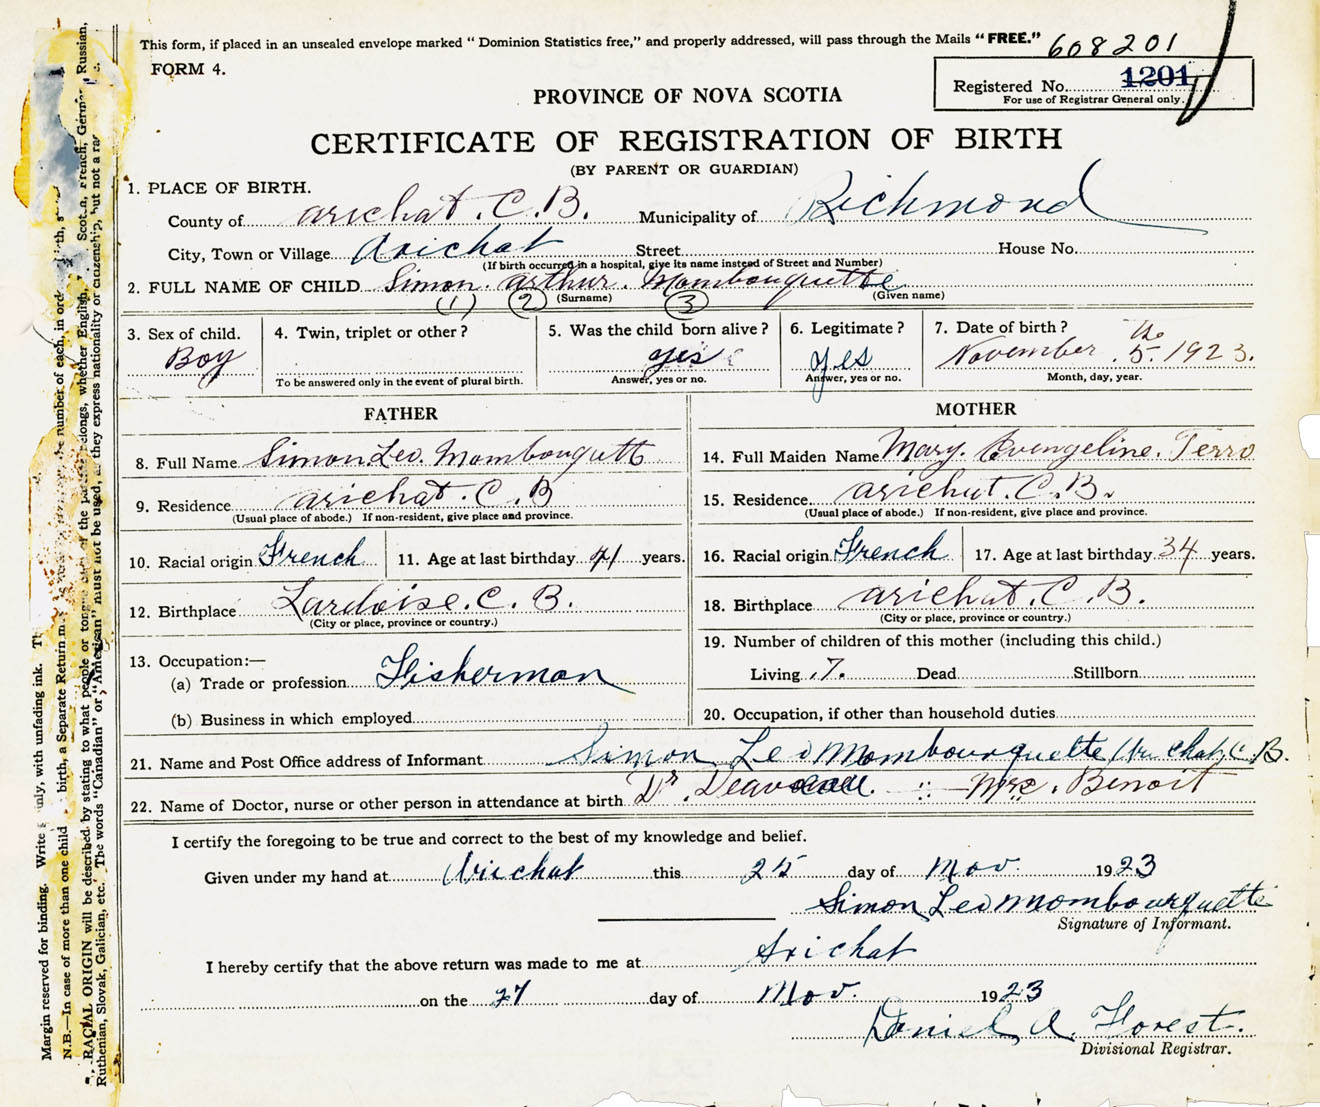 This form, if placed in an unsealed envelope marked "Dominion Statistics free," and properly addressed, will pass through the Mails "FREE."
608201
FORM 4.
Registered No. 1201
For use of Registrar General only.
PROVINCE OF NOVA SCOTIA
CERTIFICATE OF REGISTRATION OF BIRTH
(BY PARENT OR GUARDIAN)
1. PLACE OF BIRTH.
County of arichat. C.B. Municipality of Richmond
City, Town or Village Arichat Street House No.
(If birth occurred in a hospital, give its name instead of Street and Number)
2. FULL NAME OF CHILD Simon. arthur. Mombouquette
(1) (2) (Surname) (3) (Given name)
3. Sex of child. 4. Twin, triplet or other? 5. Was the child born alive? 6. Legitimate? 7. Date of birth?
Boy yes yes November. the 5. 1923.
To be answered only in the event of plural birth. Answer, yes or no. Answer, yes or no. Month, day, year.
FATHER MOTHER
8. Full Name Simon. Leo. Mombouqutt 14. Full Maiden Name Mary. Evengeline. Terro
9. Residence arichat. C. B 15. Residence arichat. C. B.
(Usual place of abode.) If non-resident, give place and province. (Usual place of abode.) If non-resident, give place and province.
10. Racial origin French 11. Age at last birthday 41 years. 16. Racial origin French 17. Age at last birthday 34 years.
12. Birthplace Lardoise. C. B. 18. Birthplace arichat. C. B.
(City or place, province or country.) (City or place, province or country.)
19. Number of children of this mother (including this child.)
13. Occupation:—
(a) Trade or profession Fisherman Living 7. Dead Stillborn
(b) Business in which employed 20. Occupation, if other than household duties
21. Name and Post Office address of Informant Simon Leo Mombourquette Arichat, C. B.
22. Name of Doctor, nurse or other person in attendance at birth Dr. Mrs. Benoit
I certify the foregoing to be true and correct to the best of my knowledge and belief.
Given under my hand at Arichat this 25 day of Nov. 1923
Simon Leo Mombourquette
Signature of Informant.
I hereby certify that the above return was made to me at Arichat
on the 27 day of Nov. 1923
Daniel A. Forest.
Divisional Registrar.
Margin reserved for binding. Write only, with unfading ink.
N.B.—In case of more than one child birth, a Separate Return number of each, in
RACIAL ORIGIN will be described by stating to what people or the belongs, whether English, Scotch, French, German, Russian,
Ruthenian, Slovak, Galician, etc. The words "Canadian" or "American" must not be used, as they express nationality or citizenship, but not a